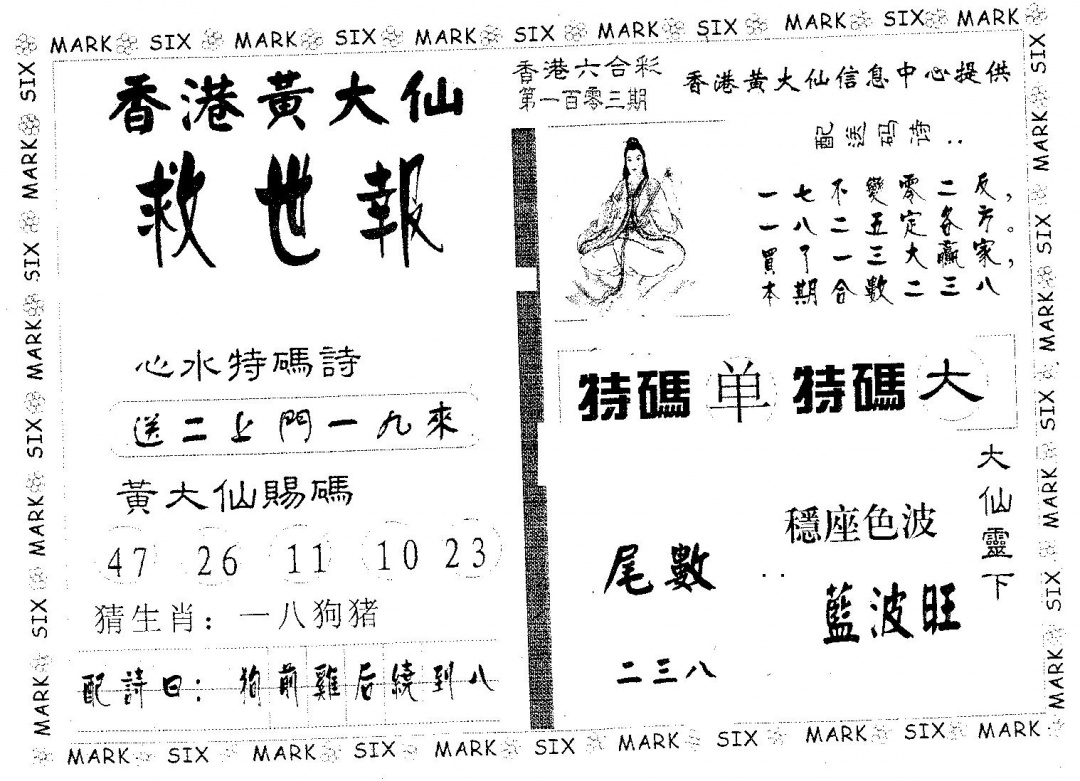 MARK SIX MARK SIX MARK SIX MARK SIX MARK SIX MARK
香港黃大仙
救世報
心水特碼詩
送二上門一九來
黃大仙賜碼
47 26 11 10 23
猜生肖：一八狗猪
配詩曰：狗前雞后繞到八
香港六合彩
第一百零三期
香港黄大仙信息中心提供
配送码诗：
一七不變零二反，
一八二五定各方。
買了一三大赢家，
本期合數二三八
特碼 单 特碼 大
大仙靈下
穩座色波
藍波旺
尾數：
二三八
SIX MARK SIX MARK SIX MARK SIX MARK
SIX MARK SIX MARK SIX MARK SIX MARK
MARK SIX MARK SIX MARK SIX MARK SIX MARK SIX MARK